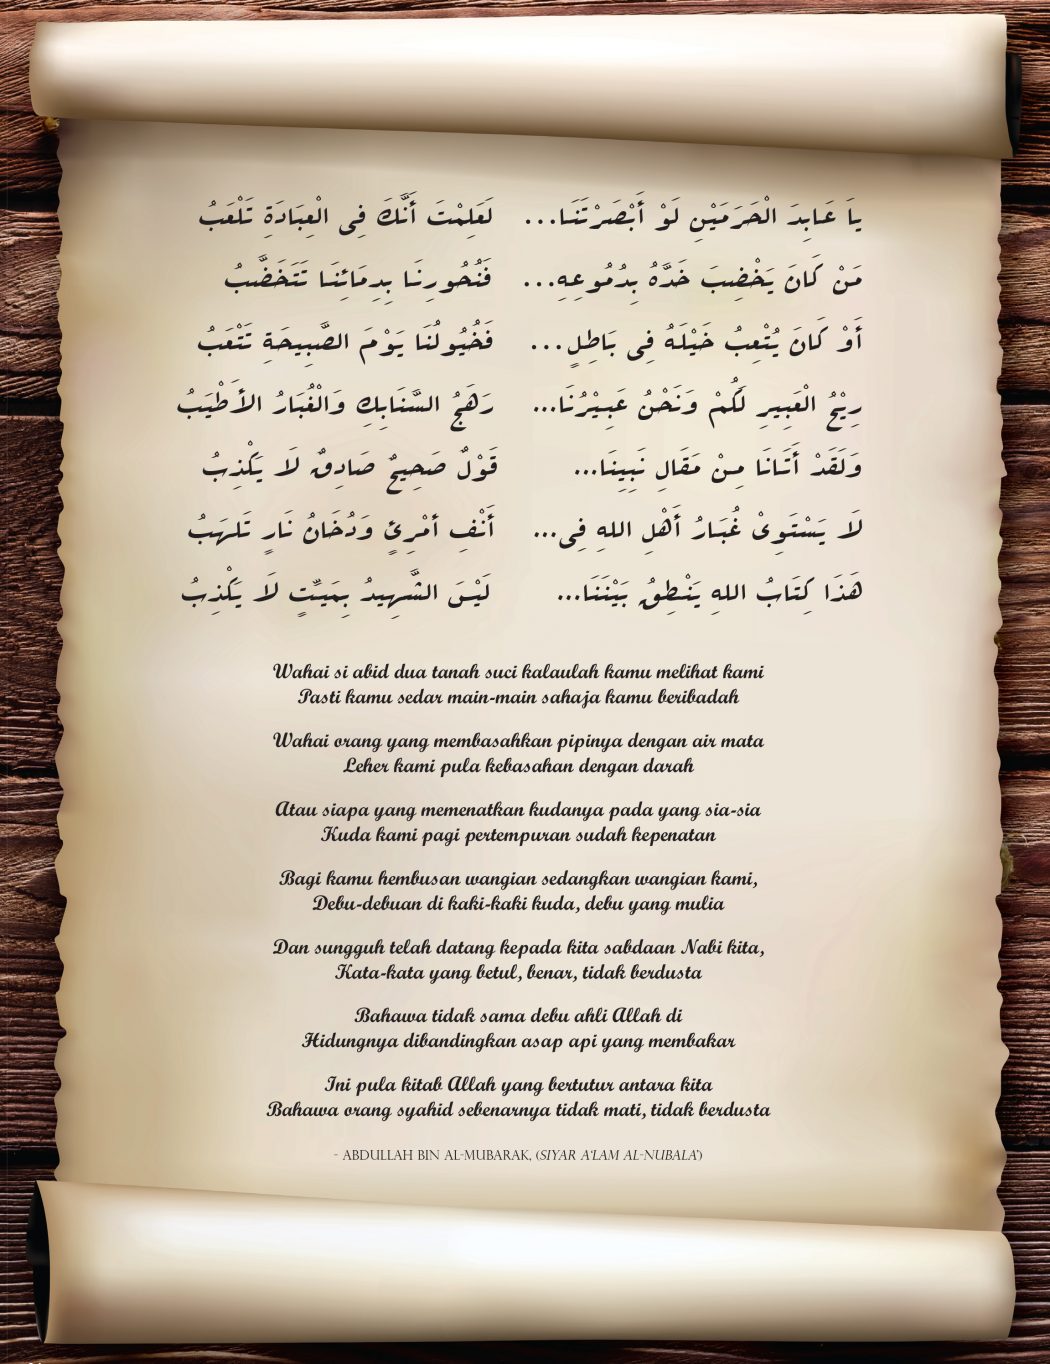 ياَ عَابِدَ الْحَرَمَيْنِ لَوْ أَبْصَرْتَنَا... لَعَلِمْتَ أَنَّكَ فِى الْعِبَادَةِ تَلْعَبُ
مَنْ كَانَ يَخْضِبَ خَدَّهُ بِدُمُوعِهِ... فَنُحُورِنَا بِدِمَائِنَا تَتَخَضَّبُ
أَوْ كَانَ يُتْعِبُ خَيْلَهُ فِى بَاطِلٍ... فَخُيُولُنَا يَوْمَ الصَّبِيحَةِ تَتْعَبُ
رِيْحُ الْعَبِيرِ لَكُمْ وَنَحْنُ عَبِيْرُنَا... رَهَجُ السَّنَابِكِ وَالْغُبَارُ الأَطْيَبُ
وَلَقَدْ أَتَانَا مِنْ مَقَالِ نَبِينَا... قَوْلٌ صَحِيحٌ صَادِقٌ لَا يَكْذِبُ
لَا يَسْتَوِىْ غُبَارُ أَهْلِ اللهِ فِى... أَنْفِ أمْرِئٍ وَدُخَانُ نَارٍ تَلهَبُ
هَذَا كِتَابُ اللهِ يَنْطِقُ بَيْنَنَا... لَيْسَ الشَّهِيدُ بِمَيِّتٍ لَا يَكْذِبُ
Wahai si abid dua tanah suci kalaulah kamu melihat kami
Pasti kamu sedar main-main sahaja kamu beribadah
Wahai orang yang membasahkan pipinya dengan air mata
Leher kami pula kebasahan dengan darah
Atau siapa yang memenatkan kudanya pada yang sia-sia
Kuda kami pagi pertempuran sudah kepenatan
Bagi kamu hembusan wangian sedangkan wangian kami,
Debu-debuan di kaki-kaki kuda, debu yang mulia
Dan sungguh telah datang kepada kita sabdaan Nabi kita,
Kata-kata yang betul, benar, tidak berdusta
Bahawa tidak sama debu ahli Allah di
Hidungnya dibandingkan asap api yang membakar
Ini pula kitab Allah yang bertutur antara kita
Bahawa orang syahid sebenarnya tidak mati, tidak berdusta
- ABDULLAH BIN AL-MUBARAK, (SIYAR A'LAM AL-NUBALA')